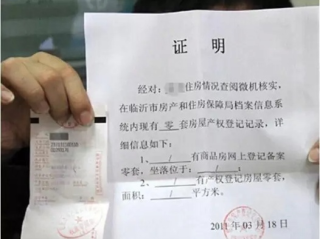 证 明
经对：住房情况查阅微机核实，
在临沂市房产和住房保障局档案信息系
统内现有 零 套房屋产权登记记录，详
细信息如下：
1、 / 有商品房网上登记备案
零套，坐落位于： / ；
2、 / 有产权登记房屋零套，
面积： / 平方米。
2011 年 03 月 18 日